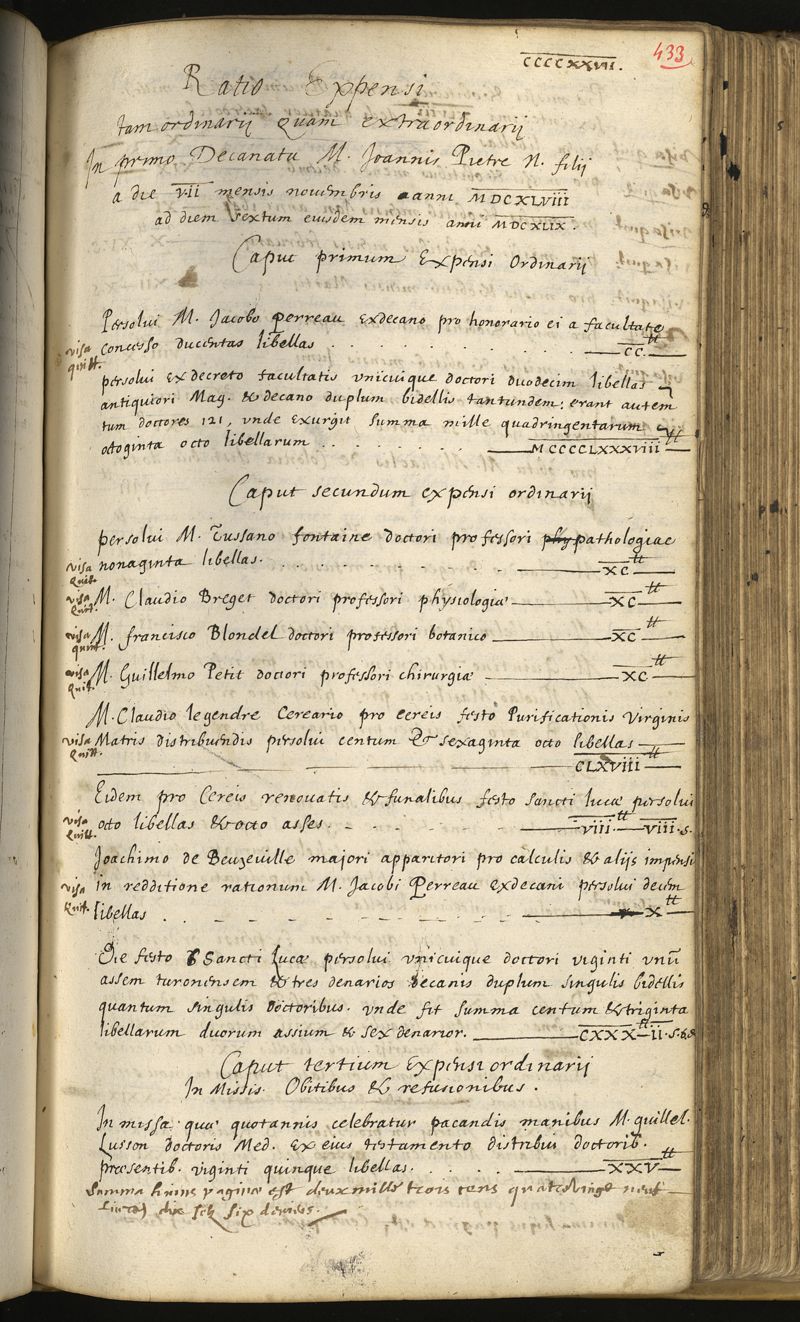 CCCCXXVII.
433
Ratio Expensi
tam ordinarij quam extraordinarij
In primo Decanatu M. Joannis Pietre N. filij
a die VII mensis novembris anni MDCXLVIII
ad diem Sextum eiusdem mensis anni MDCXLIX.
Caput primum Expensi Ordinarij
Persolui M. Jacobo Perreau Exdecano pro honorario ei a facultate
visa quitt.
concesso ducentas libellas . . . . . . . . . CC tt
persolui ex decreto facultatis vnicuique doctori duodecim libellas
antiquiori Mag. & decano duplum bidellis tantundem; erant autem
tum doctores 121, vnde exurgit Summa mille quadringentarum &
octoginta octo libellarum . . . . . . . MCCCCLXXXVIII tt
Caput secundum expensi ordinarij
persolui M. Tussano fontaine doctori professori phy pathologiae
visa Quit.
nonaginta libellas. . . . . . . . . . XC tt
visa Quit.
M. Claudio Breget doctori professori physiologiæ XC tt
visa quitt.
M. francisco Blondel doctori professori botanico XC tt
visa Quit.
M. Guillelmo Petit doctori professori chirurgiæ XC tt
M. Claudio legendre Cereario pro cereis festo Purificationis Virginis
visa Quitt.
Matris distribuendis persolui centum & sexaginta octo libellas
CLXVIII tt
Eidem pro Cereis renouatis & funalibus festo Sancti lucæ persolui
visa Quitt.
octo libellas & octo asses. . . . . . VIII tt VIII s.
Joachimo de Beuzeville majori apparitori pro calculis & alijs impensis
visa Quit.
in redditione rationum M. Jacobi Perreau exdecani persolui decem
libellas . . . . . . . . . X tt
Die festo Sancti Lucæ persolui vnicuique doctori viginti vnū
assem turonensem & tres denarios decanis duplum singulis bidellis
quantum singulis Doctoribus. vnde fit summa centum & triginta
libellarum duorum assium & sex denarior. CXXX tt II s. 6 d
Caput tertium Expensi ordinarij
In Missis Obitibus & refusionibus.
In missa quæ quotannis celebratur pacandis manibus M. guillel.
Lusson doctoris Med. ex eius testamento distribui doctorib.
præsentib. viginti quinque libellas. . . . . XXV tt
Summa huius paginæ est deux mille trois cens quatrevingt neuf
Liures dix solz six deniers.